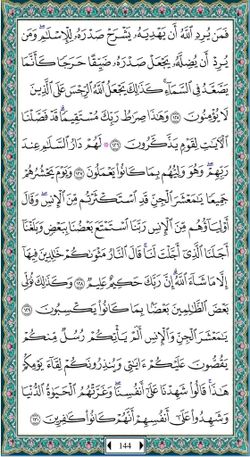 فَمَن يُرِدِ ٱللَّهُ أَن يَهْدِيَهُۥ يَشْرَحْ صَدْرَهُۥ لِلْإِسْلَٰمِ ۖ وَمَن
يُرِدْ أَن يُضِلَّهُۥ يَجْعَلْ صَدْرَهُۥ ضَيِّقًا حَرَجًا كَأَنَّمَا
يَصَّعَّدُ فِى ٱلسَّمَآءِ ۚ كَذَٰلِكَ يَجْعَلُ ٱللَّهُ ٱلرِّجْسَ عَلَى ٱلَّذِينَ
لَا يُؤْمِنُونَ ١٢٥ وَهَٰذَا صِرَٰطُ رَبِّكَ مُسْتَقِيمًا ۗ قَدْ فَصَّلْنَا
ٱلْءَايَٰتِ لِقَوْمٍ يَذَّكَّرُونَ ١٢٦ ۞ لَهُمْ دَارُ ٱلسَّلَٰمِ عِندَ
رَبِّهِمْ ۖ وَهُوَ وَلِيُّهُم بِمَا كَانُوا۟ يَعْمَلُونَ ١٢٧ وَيَوْمَ يَحْشُرُهُمْ
جَمِيعًا يَٰمَعْشَرَ ٱلْجِنِّ قَدِ ٱسْتَكْثَرْتُم مِّنَ ٱلْإِنسِ ۖ وَقَالَ
أَوْلِيَآؤُهُم مِّنَ ٱلْإِنسِ رَبَّنَا ٱسْتَمْتَعَ بَعْضُنَا بِبَعْضٍ وَبَلَغْنَآ
أَجَلَنَا ٱلَّذِىٓ أَجَّلْتَ لَنَا ۚ قَالَ ٱلنَّارُ مَثْوَىٰكُمْ خَٰلِدِينَ فِيهَآ
إِلَّا مَا شَآءَ ٱللَّهُ ۗ إِنَّ رَبَّكَ حَكِيمٌ عَلِيمٌ ١٢٨ وَكَذَٰلِكَ نُوَلِّى
بَعْضَ ٱلظَّٰلِمِينَ بَعْضًۢا بِمَا كَانُوا۟ يَكْسِبُونَ ١٢٩
يَٰمَعْشَرَ ٱلْجِنِّ وَٱلْإِنسِ أَلَمْ يَأْتِكُمْ رُسُلٌ مِّنكُمْ
يَقُصُّونَ عَلَيْكُمْ ءَايَٰتِى وَيُنذِرُونَكُمْ لِقَآءَ يَوْمِكُمْ
هَٰذَا ۚ قَالُوا۟ شَهِدْنَا عَلَىٰٓ أَنفُسِنَا ۖ وَغَرَّتْهُمُ ٱلْحَيَوٰةُ ٱلدُّنْيَا
وَشَهِدُوا۟ عَلَىٰٓ أَنفُسِهِمْ أَنَّهُمْ كَانُوا۟ كَٰفِرِينَ ١٣٠
144